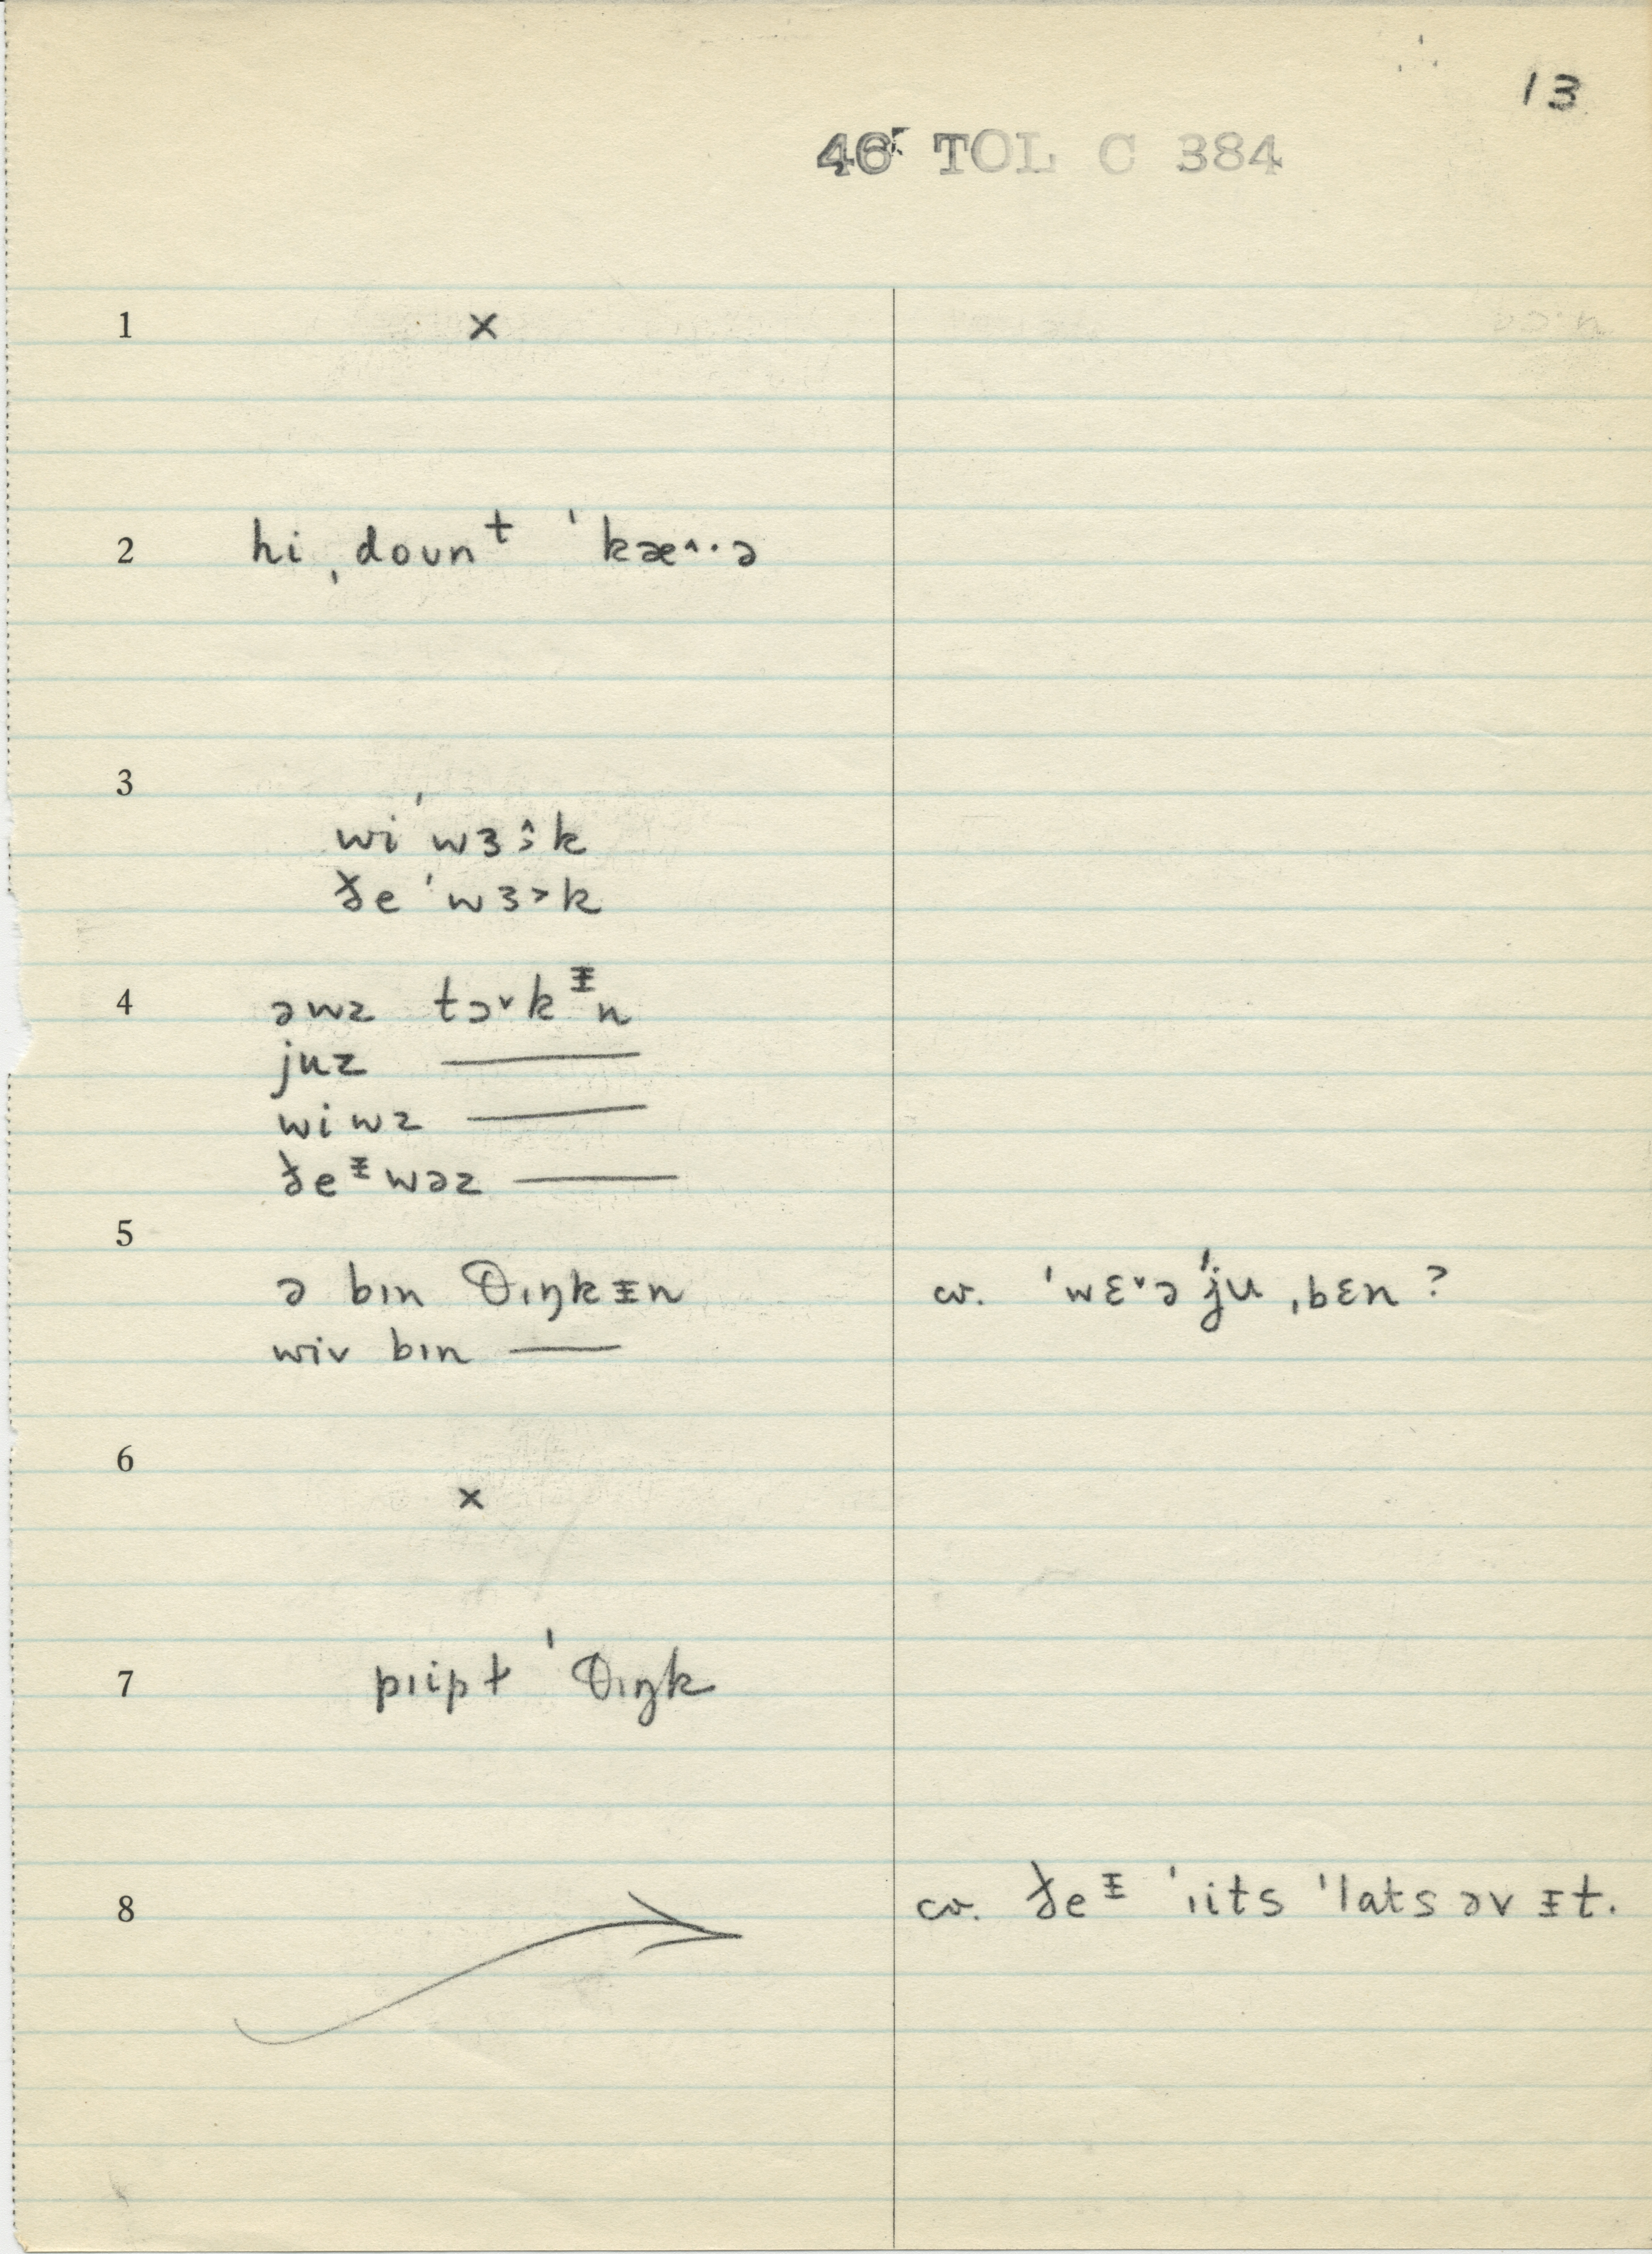 13
46 TOL C 384
1 ×
2 hi ˌdoʊnᵗ ˈkæ˄·ə
3
wi ˈwɜ˄˒k
ðe ˈwɜ˃k
4 əwz tɔ˅kᵻn
juz ———
wiwz ———
ðeᵻwəz ———
5
ə bɪn θɪŋkᵻn cv. ˈwɛ˅ə ˈju ˌbɛn?
wiv bɪn ———
6
×
7 pıipt ˈθɪŋk
8 cv. ðeᵻ ˈıits ˈlats əv ᵻt.